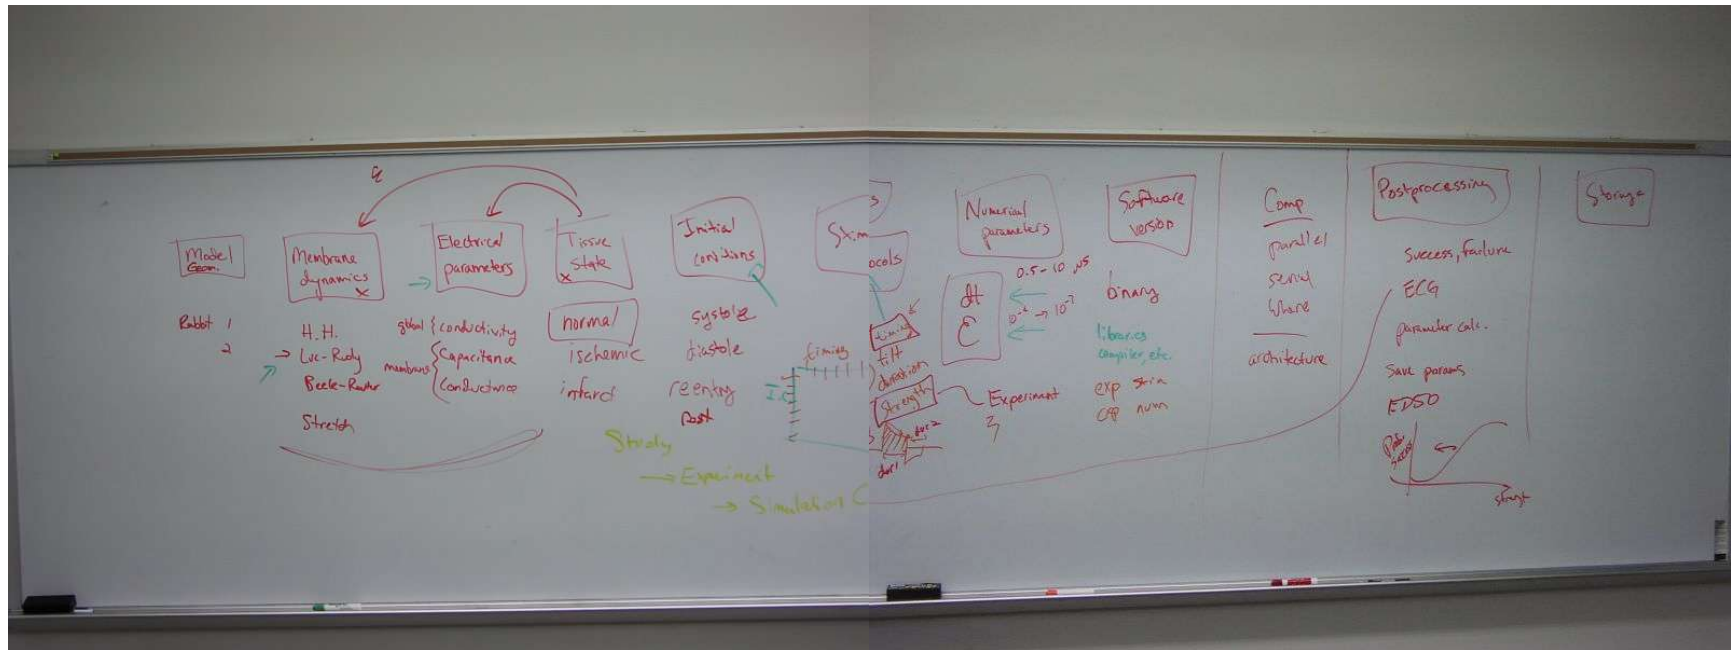 Model
Geom.
Rabbit 1
2
Membrane
dynamics
x
H.H.
→ Luo-Rudy
Beeler-Reuter
Stretch
Electrical
parameters
global { conductivity
membrane { Capacitance
Conductance
Tissue
state
x
normal
ischemic
infarct
Initial
conditions
systole
diastole
reentry
Study
→ Experiment
→ Simulation C
Stim
timing
s
ocols
timing
tilt
duration
Strength
Experiment
Numerical
parameters
0.5 - 10 μs
dt
ε
Software
version
binary
libraries
compiler, etc.
Comp
parallel
serial
Where
architecture
Postprocessing
success, failure
ECG
parameter calc.
Save params
ED50
Prob.
success
strength
Storage